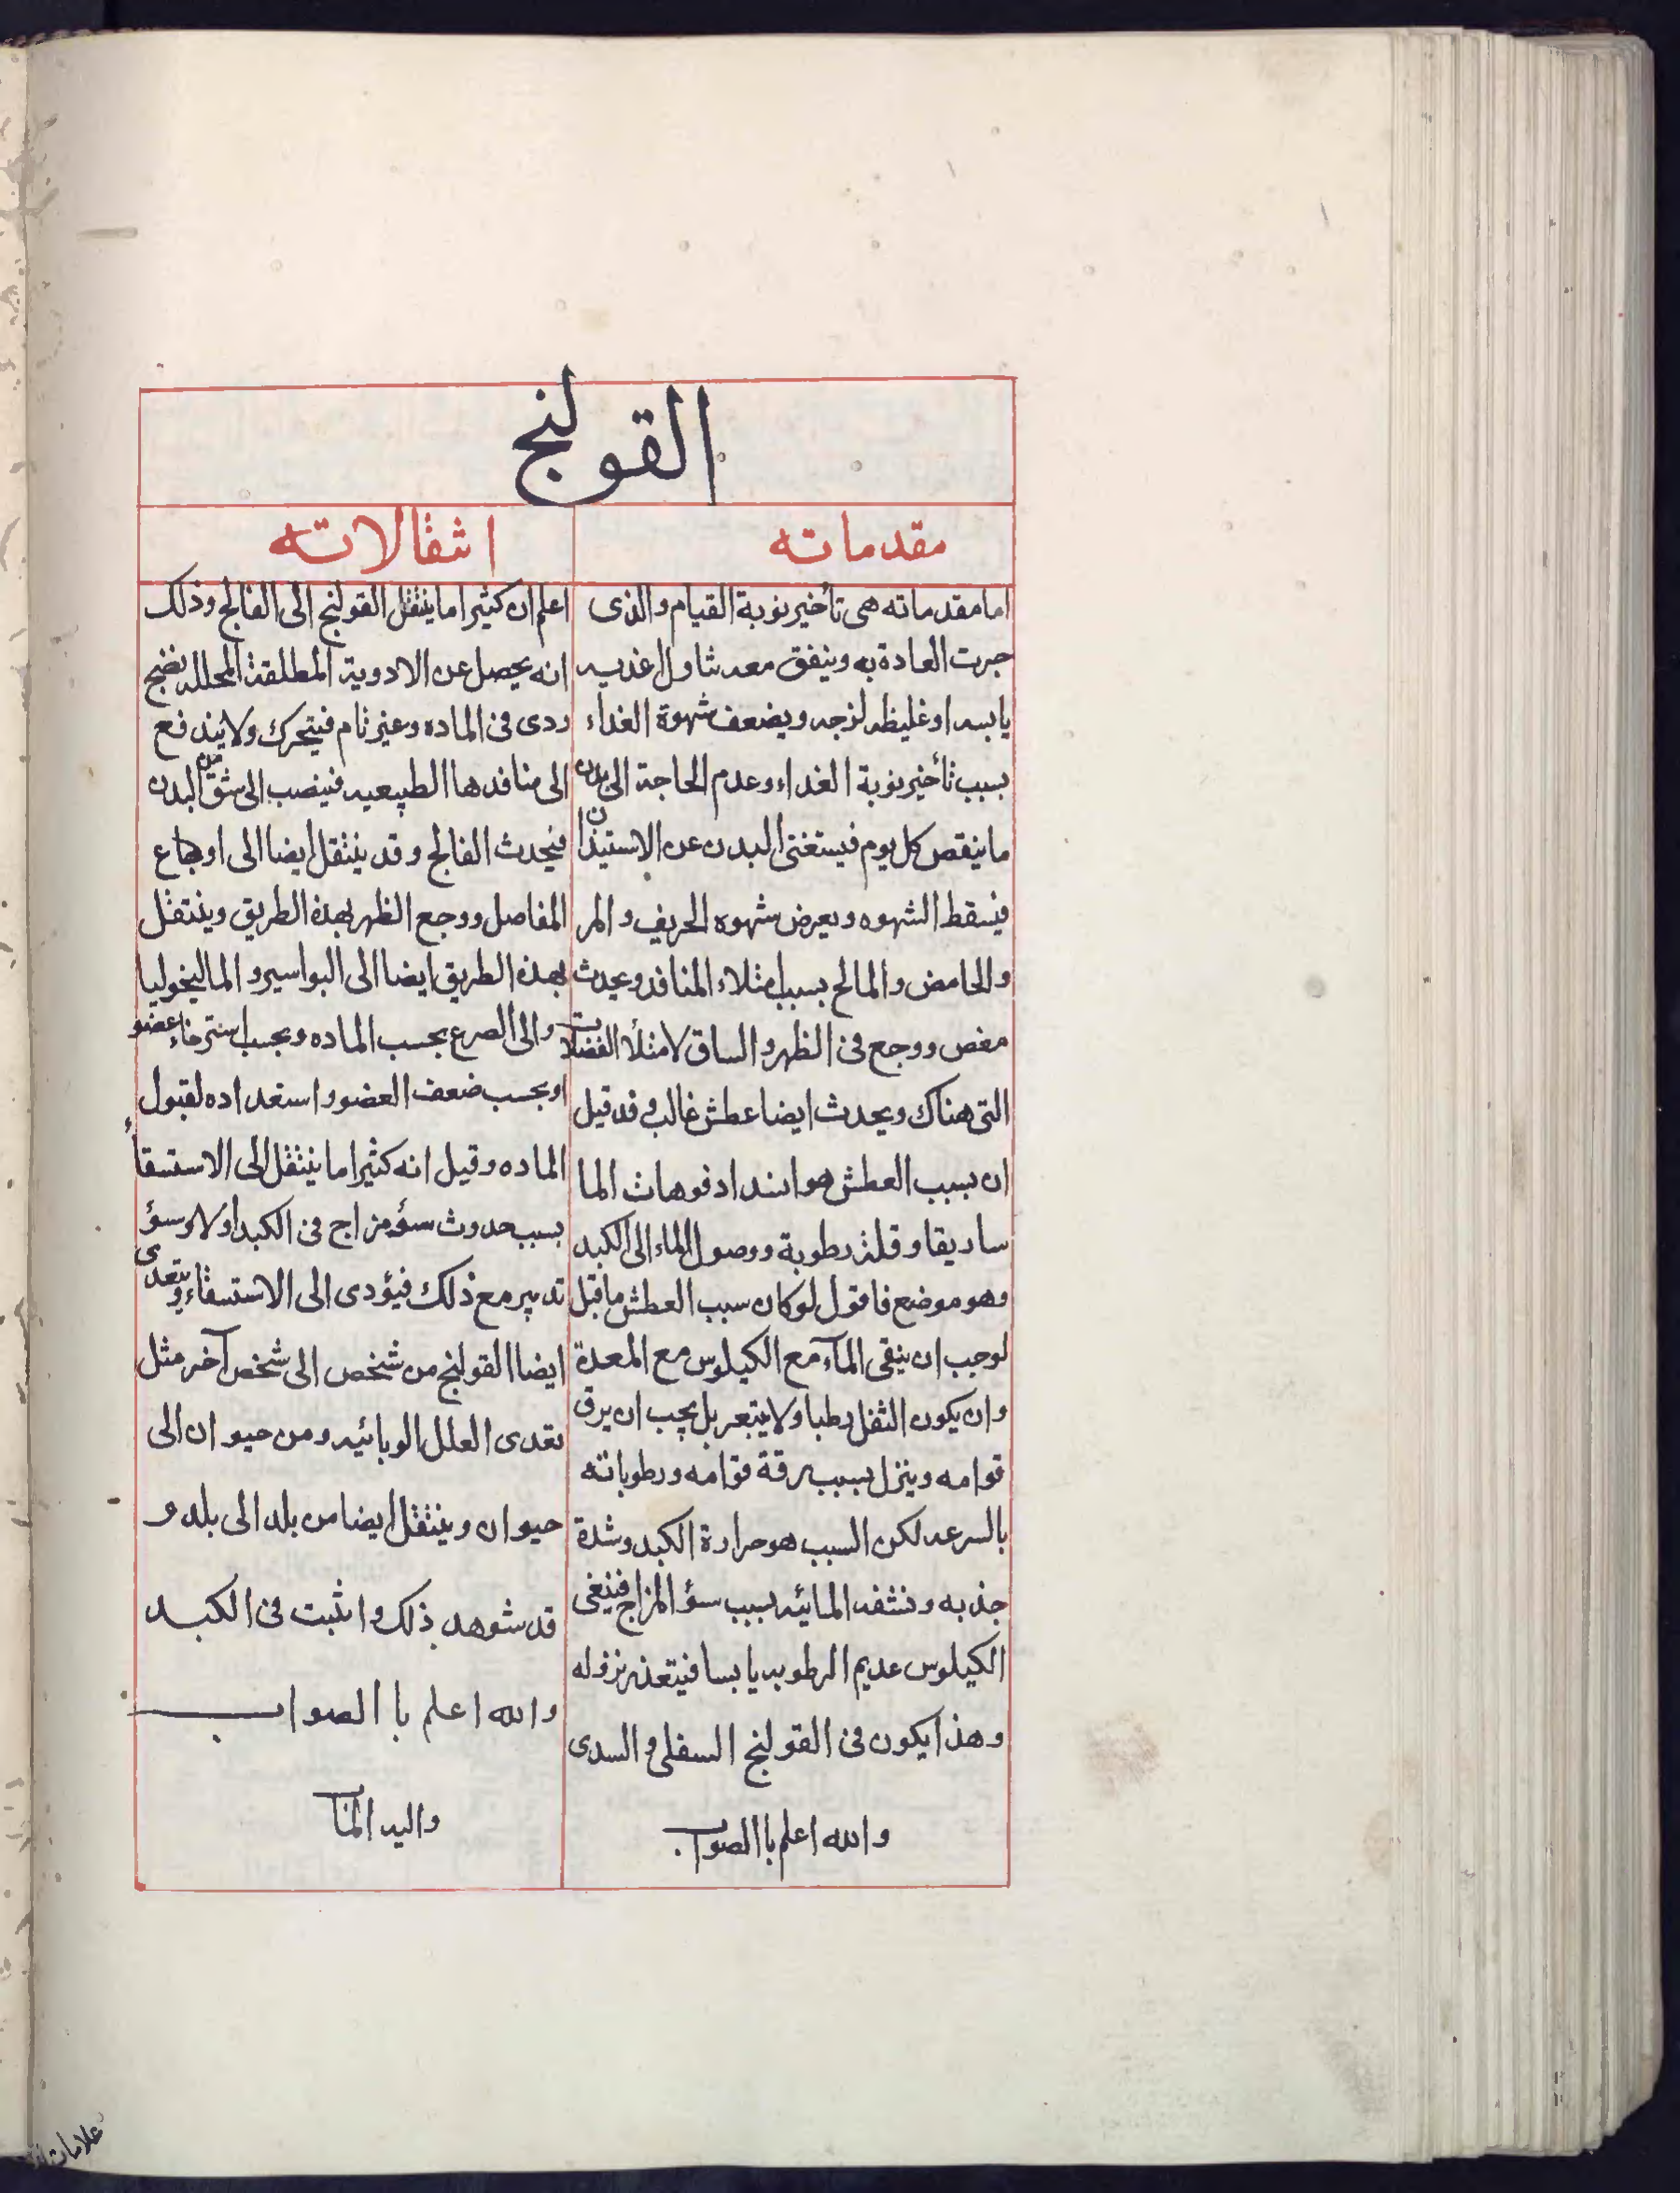 القولنج
مقدماته
اما مقدماته هى تأخير نوبة القيام والذى
جرت العادة به ويتفق معه تناول اغذيه
يابسه او غليظه لزجه ويضعف شهوة الغداء
بسبب تأخير نوبة الغداء وعدم الحاجة الى بدل
ما ينقص كل يوم فيستغنى البدن عن الاستيذان
فيسقط الشهوه ويعرض شهوه الحريف والمر
والحامض والمالح بسبب امتلاء المنافد ويحدث
مغص ووجع فى الظهر والساق لامتلأ الفضلات
التى هناك ويحدث ايضا عطش غالب وقد قيل
ان بسبب العطش هو انسداد فوهات الما
ساريقا وقلة رطوبة ووصول الماء الى الكبد
وهو موضع فاقول لو كان سبب العطش ما قيل
لوجب ان ينقى المآء مع الكيلوس مع المعدة
وان يكون الثفل رطبا ولا يتبعر بل يجب ان يرق
قوامه وينزل بسبب رقة قوامه ورطوباته
بالسرعه لكن السبب هو حرارة الكبد وشدة
جذبه ونشفه المائيه بسبب سؤ المزاج فيبقى
الكيلوس عديم الرطوبه يابسا فيتعذر نزوله
وهذا يكون فى القولنج السفلى والسدى
والله اعلم باالصواب
انتقالاته
اعلم ان كثيرا ما ينتقل القولنج الى الفالج وذلك
انه يحصل عن الادوية المطلقة المحلله نضج
ردى فى الماده وغير تام فيتحرك ولا يندفع
الى منافدها الطبيعيه فينصب الى شق البدن
فيحدث الفالج وقد ينتقل ايضا الى اوجاع
المفاصل ووجع الظهر بهذه الطريق وينتقل
بهذه الطريق ايضا الى البواسير والماليخوليا
والى الصرع بحسب الماده وبحسب استرخاء عضو
او بحسب ضعف العضو واستعداده لقبول
الماده وقيل انه كثيرا ما ينتقل الى الاستسقاء
بسبب حدوث سؤ مزاج فى الكبد اولا وسؤ
تدبير مع ذلك فيؤدى الى الاستسقاء ويتعدى
ايضا القولنج من شخص الى شخص آخر مثل
تعدى العلل الوبائيه ومن حيوان الى
حيوان وينتقل ايضا من بلد الى بلد و
قد شوهد ذلك واثبت فى الكبد
والله اعلم باالصواب
واليه المآب
علامات